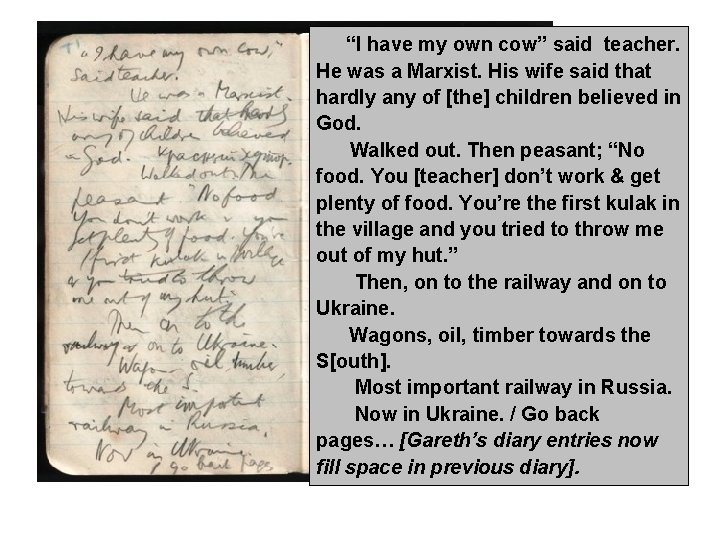 "I have my own cow,"
said teacher.
He was a Marxist.
His wife said that hardly
any of children believed
in God.
Walked out. Then
peasant. "No food
You don't work & you
get plenty of food. You're
first kulak in village
& you tried to throw
me out of my hut."
Then on to the
railway & on to Ukraine.
Wagons, oil, timber,
towards the S.
Most important
railway in Russia.
Now in Ukraine.
/ go back pages
“I have my own cow” said teacher.
He was a Marxist. His wife said that
hardly any of [the] children believed in
God.
Walked out. Then peasant; “No
food. You [teacher] don’t work & get
plenty of food. You’re the first kulak in
the village and you tried to throw me
out of my hut. ”
Then, on to the railway and on to
Ukraine.
Wagons, oil, timber towards the
S[outh].
Most important railway in Russia.
Now in Ukraine. / Go back
pages… [Gareth’s diary entries now
fill space in previous diary].